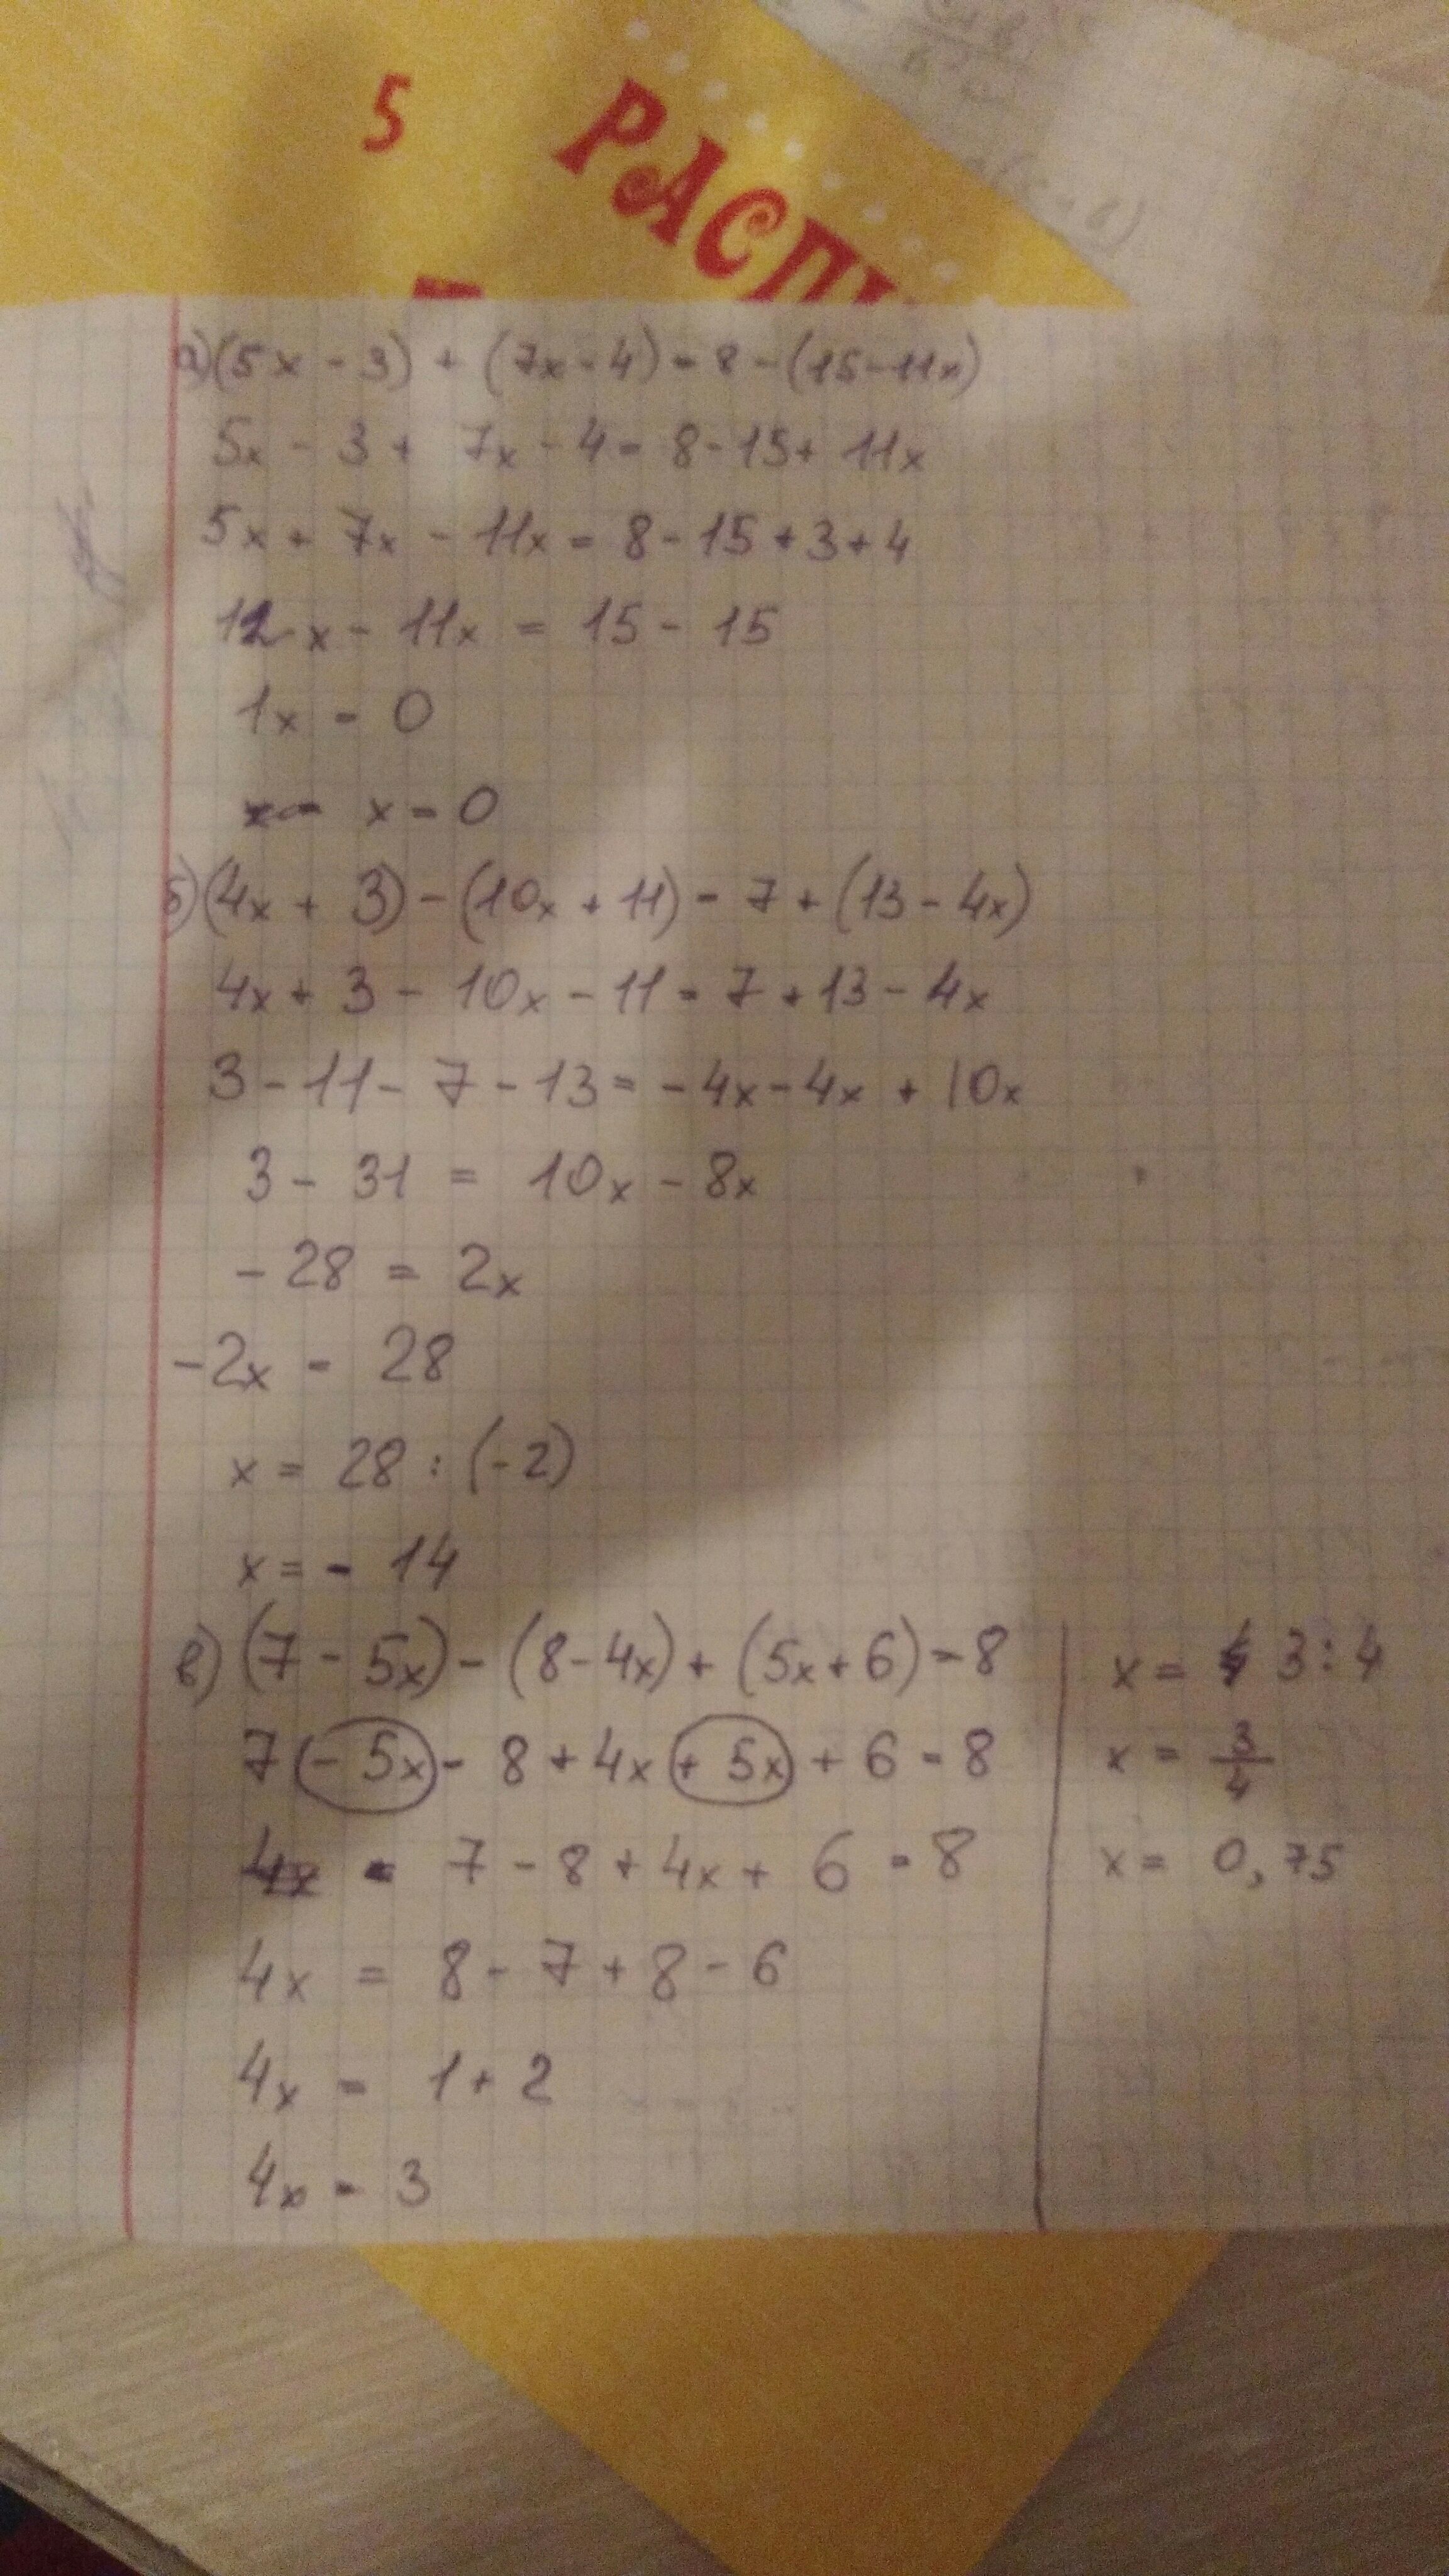 5
РАСПИ
а) (5x - 3) + (7x - 4) = 8 - (15 - 11x)
5x - 3 + 7x - 4 = 8 - 15 + 11x
5x + 7x - 11x = 8 - 15 + 3 + 4
12x - 11x = 15 - 15
1x = 0
x = 0
б) (4x + 3) - (10x + 11) = 7 + (13 - 4x)
4x + 3 - 10x - 11 = 7 + 13 - 4x
3 - 11 - 7 - 13 = - 4x - 4x + 10x
3 - 31 = 10x - 8x
- 28 = 2x
- 2x = 28
x = 28 : (-2)
x = - 14
в) (7 - 5x) - (8 - 4x) + (5x + 6) = 8
7 - 5x - 8 + 4x + 5x + 6 = 8
7 - 8 + 4x + 6 = 8
4x = 8 - 7 + 8 - 6
4x = 1 + 2
4x = 3
x = 3 : 4
x = 3/4
x = 0,75